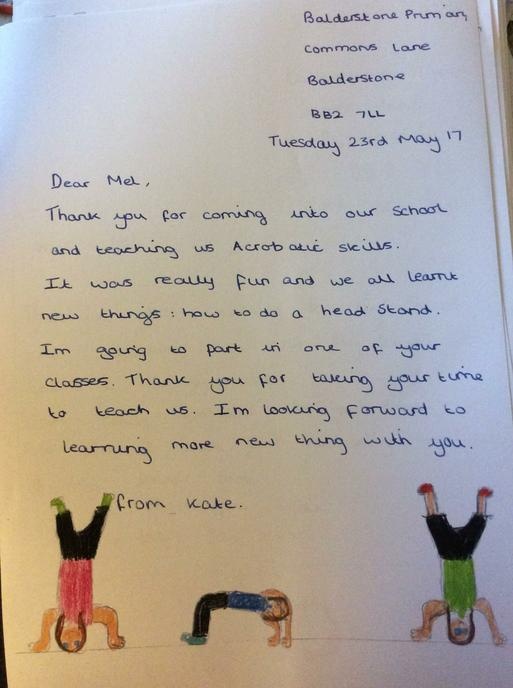 Balderstone Primary
Commons Lane
Balderstone
BB2 7LL
Tuesday 23rd May 17
Dear Mel,
Thank you for coming into our school
and teaching us Acrobatic skills.
It was really fun and we all learnt
new things: how to do a head stand.
Im going to part in one of your
classes. Thank you for taking your time
to teach us. Im looking forward to
learning more new thing with you.
from Kate.